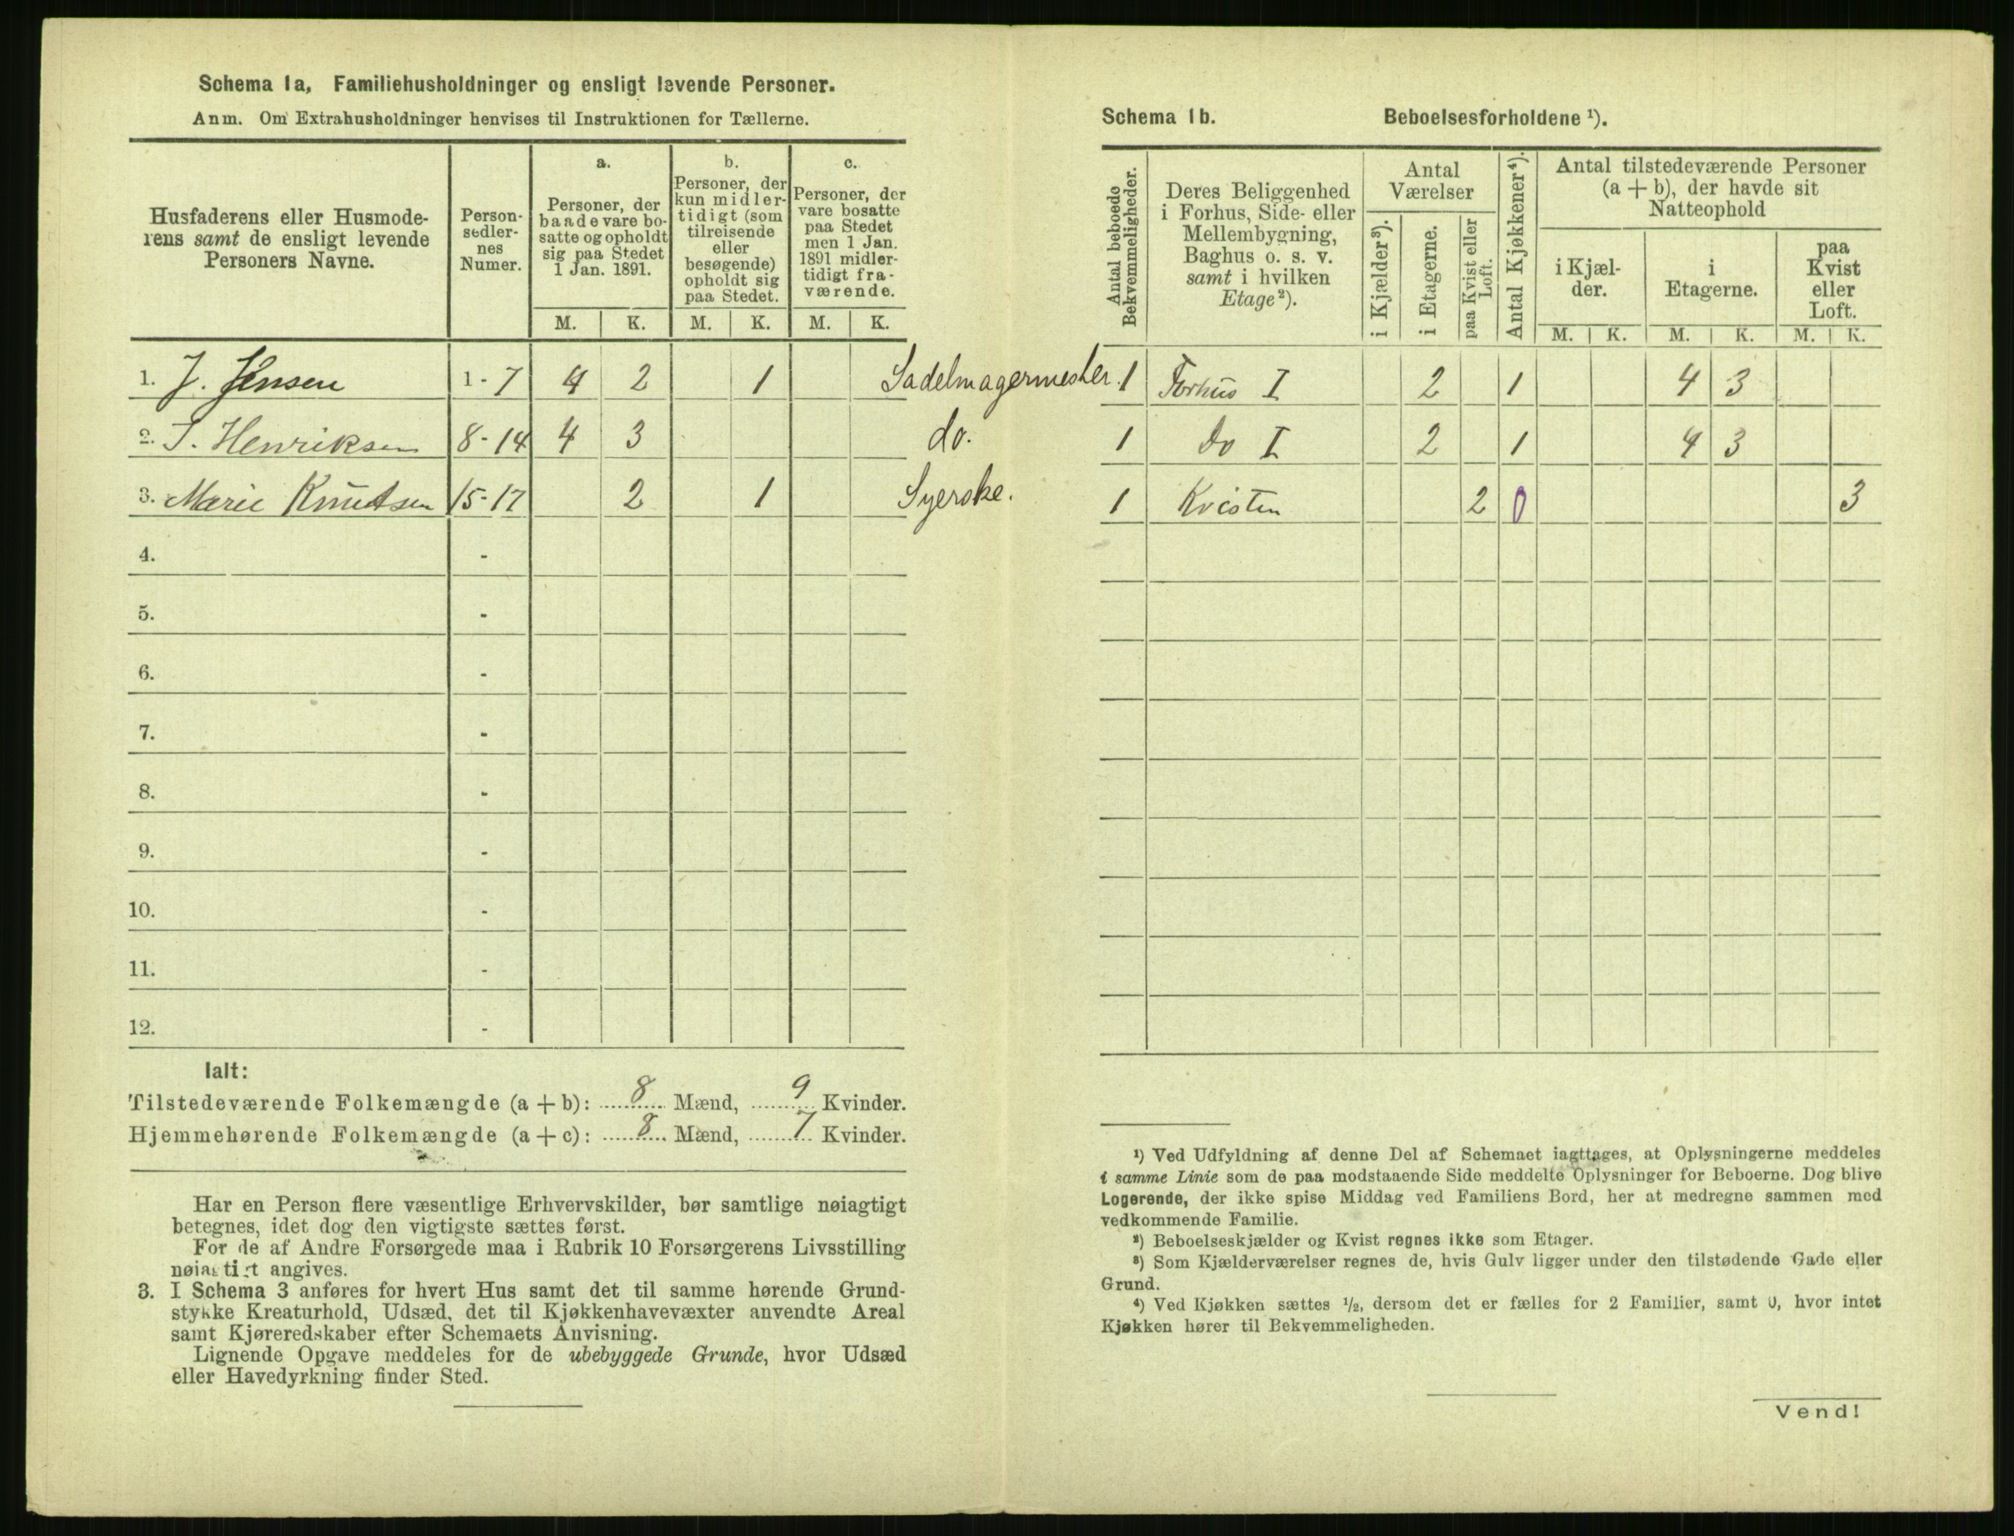 Schema 1a, Familiehusholdninger og ensligt levende Personer.
Anm. Om Extrahusholdninger henvises til Instruktionen for Tællerne.
Husfaderens eller Husmode-
rens samt de ensligt levende
Personers Navne.
Person-
sedler-
nes
Numer.
a.
Personer, der
baade vare bo-
satte og opholdt
sig paa Stedet
1 Jan. 1891.
M. K.
b.
Personer, der
kun midler-
tidigt (som
tilreisende
eller
besøgende)
opholdt sig
paa Stedet.
M. K.
c.
Personer, der
vare bosatte
paa Stedet
men 1 Jan.
1891 midler-
tidigt fra-
værende.
M. K.
1. J. Jensen 1 - 7 4 2 1 Sadelmagermester.
2. S. Henriksen 8 - 14 4 3 do.
3. Marie Knudsen 15 - 17 2 1 Syerske.
4. -
5. -
6. -
7. -
8. -
9. -
10. -
11. -
12. -
Ialt:
Tilstedeværende Folkemængde (a + b): 8 Mænd, 9 Kvinder.
Hjemmehørende Folkemængde (a + c): 8 Mænd, 7 Kvinder.
Har en Person flere væsentlige Erhvervskilder, bør samtlige nøiagtigt
betegnes, idet dog den vigtigste sættes først.
For de af Andre Forsørgede maa i Rubrik 10 Forsørgerens Livsstilling
nøiagtigt angives.
3. I Schema 3 anføres for hvert Hus samt det til samme hørende Grund-
stykke Kreaturhold, Udsæd, det til Kjøkkenhavevæxter anvendte Areal
samt Kjøreredskaber efter Schemaets Anvisning.
Lignende Opgave meddeles for de ubebyggede Grunde, hvor Udsæd
eller Havedyrkning finder Sted.
Schema 1b. Beboelsesforholdene ¹).
Antal beboede
Bekvemmeligheder.
Deres Beliggenhed
i Forhus, Side- eller
Mellembygning,
Baghus o. s. v.
samt i hvilken
Etage²).
Antal
Værelser
i Kjælder³).
i Etagerne.
paa Kvist eller
Loft.
Antal Kjøkkener⁴).
Antal tilstedeværende Personer
(a + b), der havde sit
Natteophold
i Kjæl-
der.
i
Etagerne.
paa
Kvist
eller
Loft.
M. K. M. K. M. K.
1 Forhus I 2 1 4 3
1 Do I 2 1 4 3
1 Kvisten 2 0 3
¹) Ved Udfyldning af denne Del af Schemaet iagttages, at Oplysningerne meddeles
i samme Linie som de paa modstaaende Side meddelte Oplysninger for Beboerne. Dog blive
Logerende, der ikke spise Middag ved Familiens Bord, her at medregne sammen med
vedkommende Familie.
²) Beboelseskjælder og Kvist regnes ikke som Etager.
³) Som Kjælderværelser regnes de, hvis Gulv ligger under den tilstødende Gade eller
Grund.
⁴) Ved Kjøkken sættes ½, dersom det er fælles for 2 Familier, samt 0, hvor intet
Kjøkken hører til Bekvemmeligheden.
Vend!